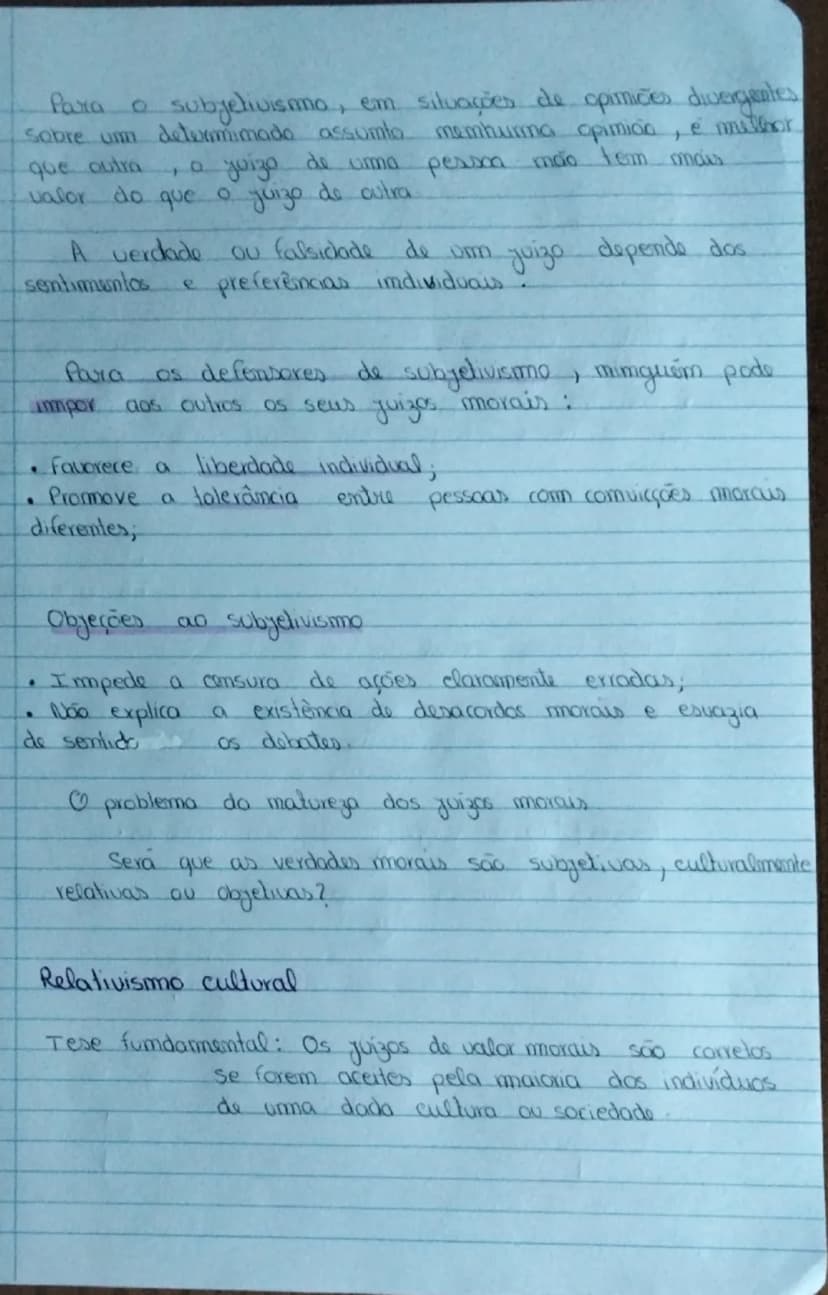 Para o subjetivismo, em situações de opiniões divergentes
sobre um determinado assunto nenhuma opinião, é melhor
que outra, o juizo de uma pessoa não tem mais
valor do que o juizo de outra.
A verdade ou falsidade de um juizo depende dos
sentimentos e preferências individuais.
Para os defensores de subjetivismo, ninguém pode
impor aos outros os seus juizos morais:
• Favorece a liberdade individual;
• Promove a tolerância entre pessoas com convicções morais
diferentes;
Objeções ao subjetivismo
• Impede a censura de ações claramente erradas;
• Não explica a existência de desacordos morais e esvazia
de sentido os debates.
O problema da natureza dos juizos morais
Será que as verdades morais são subjetivas, culturalmente
relativas ou objetivas?
Relativismo cultural
Tese fundamental: Os juizos de valor morais são corretos
se forem aceites pela maioria dos indivíduos
de uma dada cultura ou sociedade.